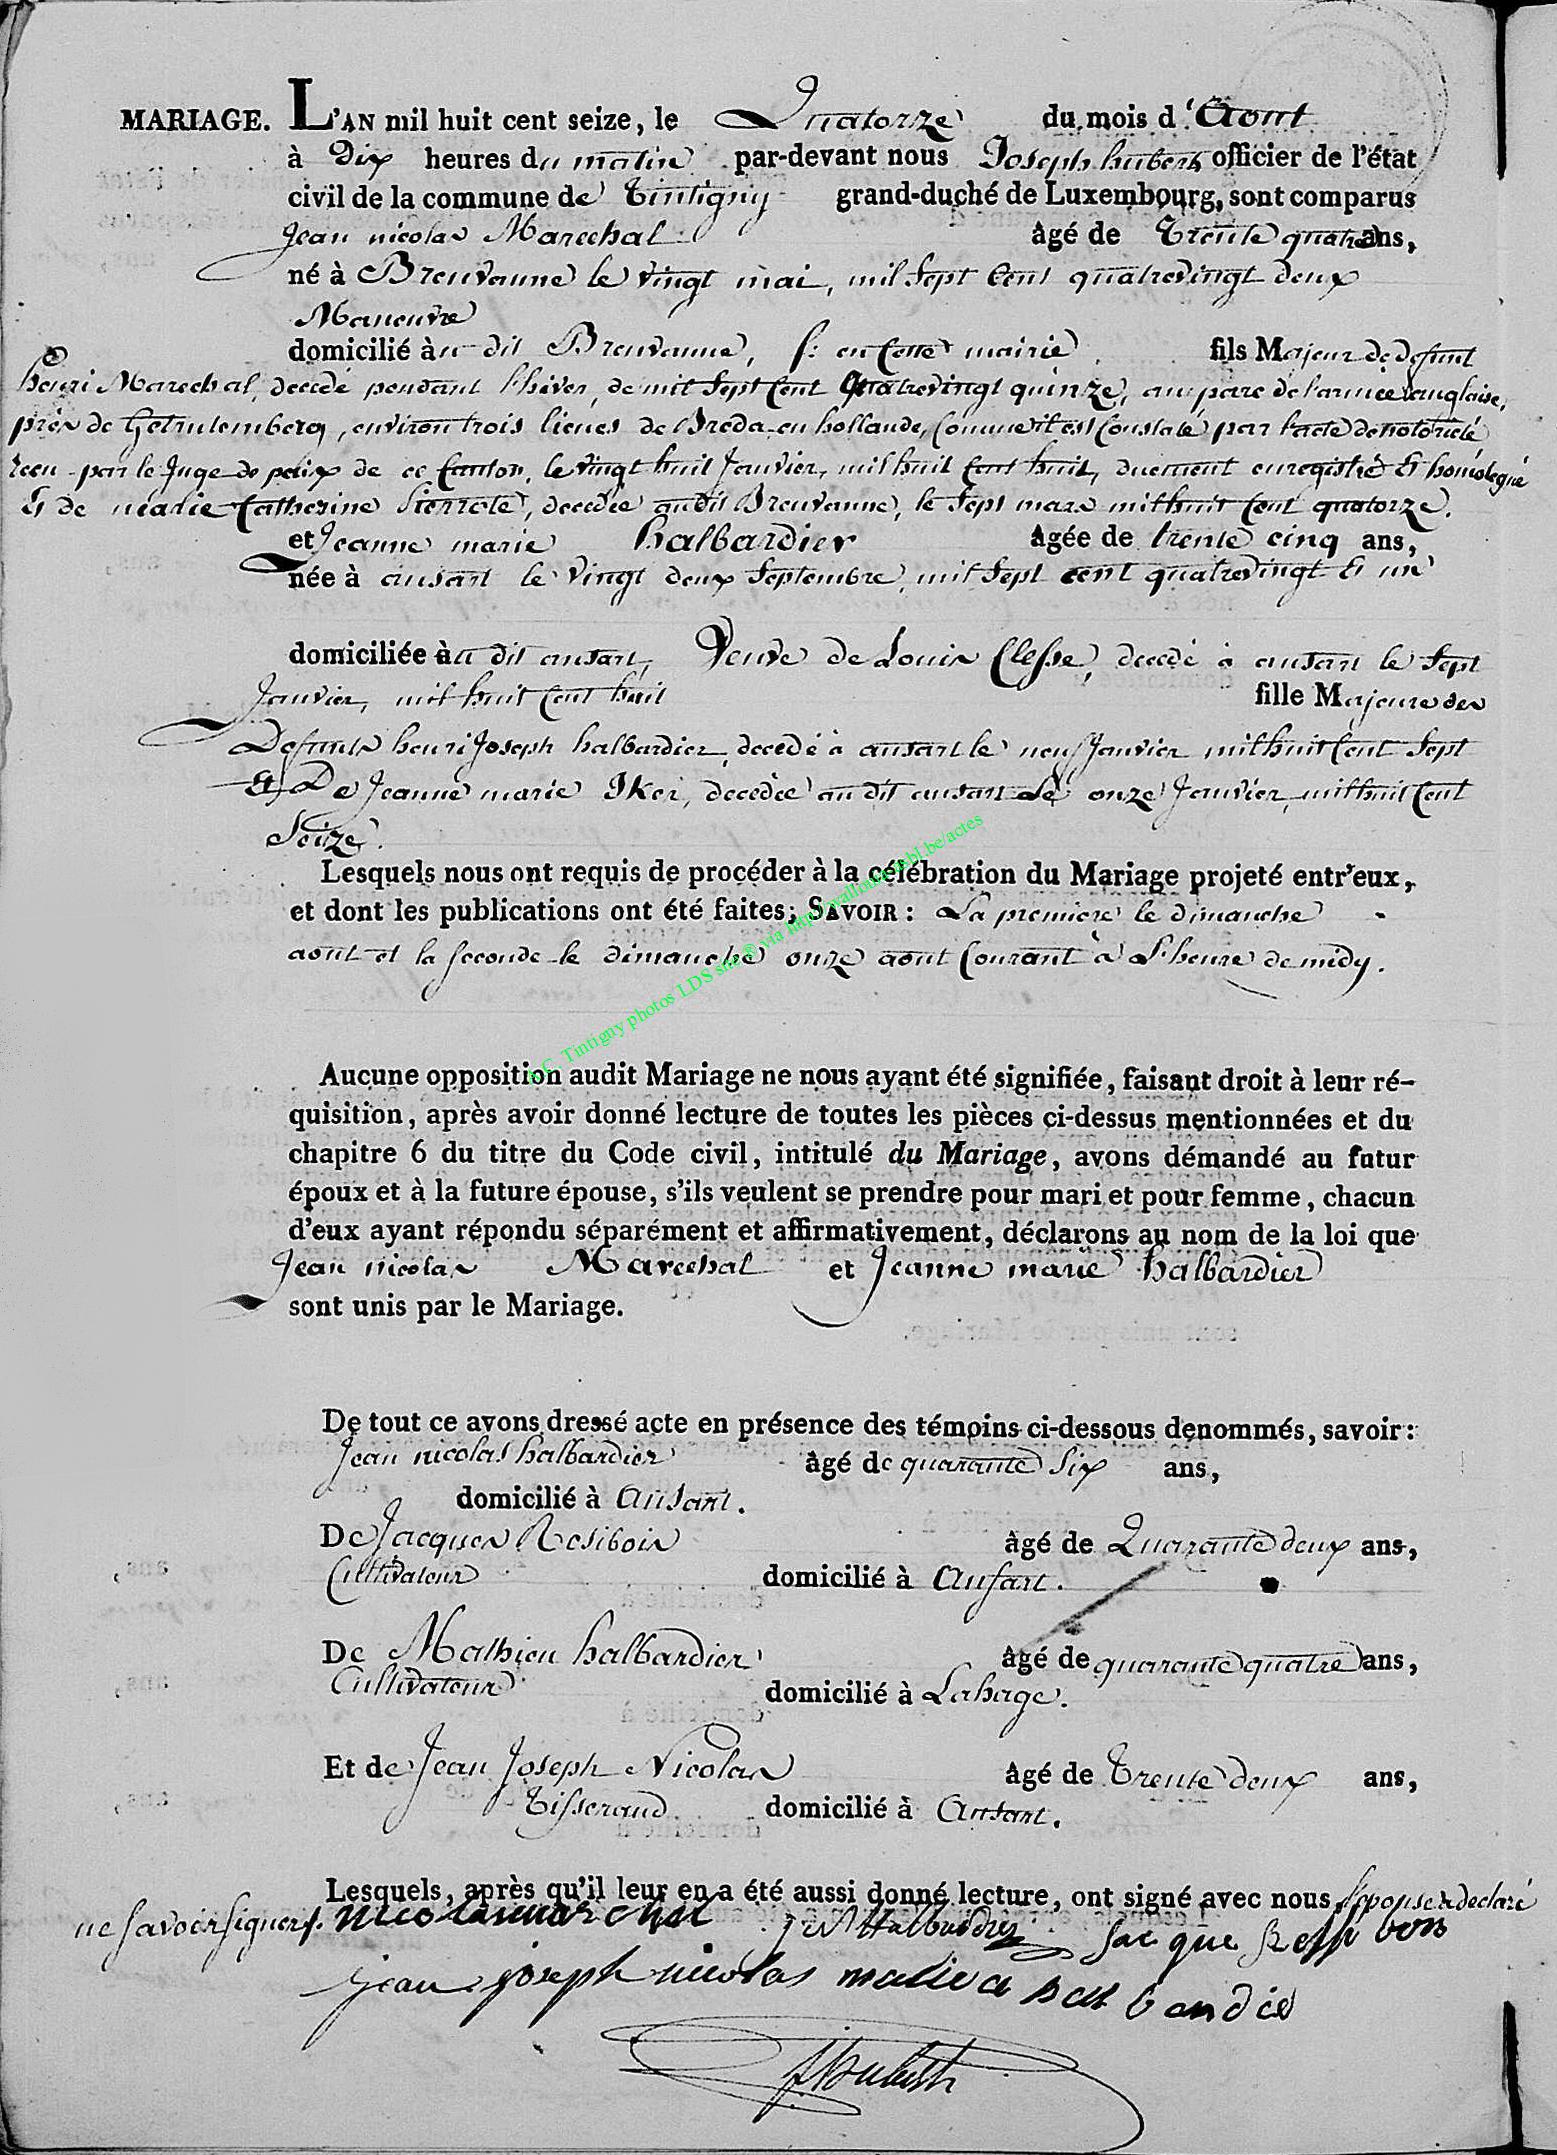 MARIAGE. L'AN mil huit cent seize, le Quatorze du mois d'Aout
à Dix heures du matin par-devant nous Joseph hubert officier de l'état
civil de la commune de Tintigny grand-duché de Luxembourg, sont comparus
Jean nicolas Marechal âgé de Trente quatre ans,
né à Breuvanne le vingt mai, mil Sept Cent quatrevingt deux
Manouvre
domicilié àu dit Breuvanne, en Cette mairie fils Majeur de defunt
henri Marechal, decedé pendant l'hiver, de mil Sept Cent Quatrevingt quinze, au parc de l'armée anglaise,
près de Getrutemberg, environ trois lieues de Breda en hollande, Comme il est Constaté par l'acte de notorieté
recu par le Juge de paix de ce Canton, le vingt huit Janvier, mil huit Cent huit, duement enregistré & homologué
& de marie Catherine Pierrote, decedée audit Breuvanne, le Sept mars mil huit Cent quatorze.
et Jeanne marie halbardier âgée de trente cinq ans,
née à ansart le vingt deux Septembre mil Sept cent quatrevingt & un
domiciliée àu dit ansart, Veuve de Louis Clesse, decedé à ansart le Sept
Janvier, mil huit Cent huit fille Majeure des
Defunts henri Joseph halbardier, decedé à ansart le neuf Janvier mil huit Cent Sept
& De Jeanne marie Iker, decedée au dit ansart Le onze Janvier, mil huit Cent
Seize.
Lesquels nous ont requis de procéder à la célébration du Mariage projeté entr'eux,
et dont les publications ont été faites; SAVOIR: La premiere le dimanche
aout et la seconde le dimanche onze aout Courant à L'heure de midy.
A.C. Tintigny photos LDS site ® via http://wallonia-asbl.be/actes
Aucune opposition audit Mariage ne nous ayant été signifiée, faisant droit à leur ré-
quisition, après avoir donné lecture de toutes les pièces ci-dessus mentionnées et du
chapitre 6 du titre du Code civil, intitulé du Mariage, avons démandé au futur
époux et à la future épouse, s'ils veulent se prendre pour mari et pour femme, chacun
d'eux ayant répondu séparément et affirmativement, déclarons au nom de la loi que
Jean nicolas Marechal et Jeanne marie halbardier
sont unis par le Mariage.
De tout ce avons dressé acte en présence des témoins ci-dessous denommés, savoir:
Jean nicolas halbardier âgé de quarante Six ans,
domicilié à Ansart.
De Jacques Rosibois âgé de Quarante deux ans,
Cultivateur domicilié à Ansart.
De Mathieu halbardier âgé de quarante quatre ans,
Cultivateur domicilié à Lahage.
Et de Jean Joseph Nicolas âgé de Trente deux ans,
Tisserand domicilié à Ansart.
Lesquels, après qu'il leur en a été aussi donné lecture, ont signé avec nous l'epouse a declaré
ne Savoir Signer. nicolas marechal Halbardier Jacque Ressibois
jean joseph nicolas matieu halbardie
JHubert